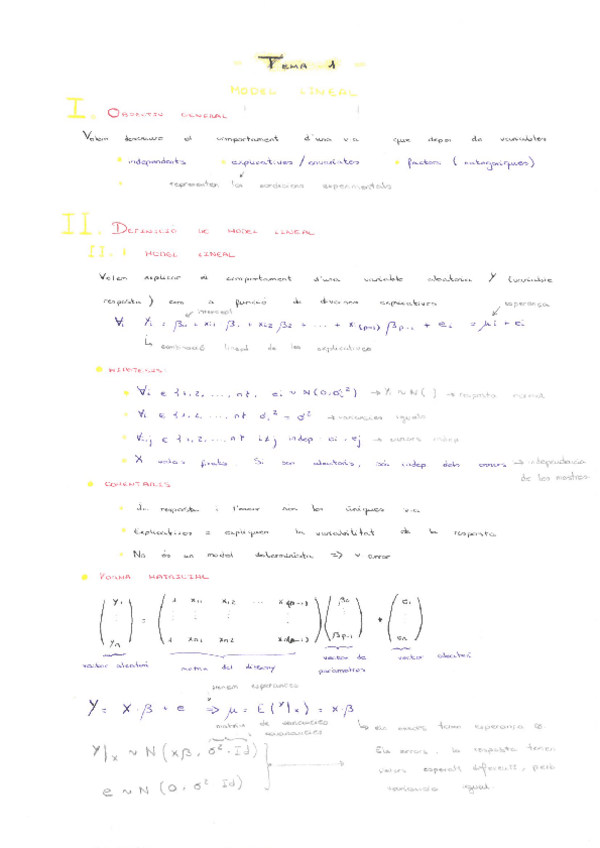 - TEMA 1 -
MODEL LINEAL
I. OBJECTIU GENERAL
Volem descriure el comportament d'una v.a. que depèn de variables
independents explicatives / covariates factors (categòriques)
representen les condicions experimentals
II. DEFINICIÓ DE MODEL LINEAL
II.1 MODEL LINEAL
Volem explicar el comportament d'una variable aleatòria Y (variable
resposta) com a funció de diverses explicatives
esperança
∀i Yi = β0 + xi1 β1 + xi2 β2 + ... + xi(p-1) βp-1 + ei = μi + ei
combinació lineal de les explicatives
HIPÒTESIS:
∀i ∈ {1,2,...,n}, ei ~ N(0,σi²) → Yi ~ N( ) → resposta normal
∀i ∈ {1,2,...,n} σi² = σ² → variancies iguals
∀i,j ∈ {1,2,...,n} i≠j indep ei, ej → errors indep
X valors fixats. Si són aleatoris, són indep dels errors → independència
de les mostres
COMENTARIS
La resposta i l'error són les úniques v.a.
Explicatives = expliquen la variabilitat de la resposta
No és un model determinista => error
FORMA MATRICIAL
( Y1 ⋮ Yn ) = ( 1 x11 x12 ... x1(p-1) ⋮ 1 xn1 xn2 xn(p-1) ) ( β0 ⋮ βp-1 ) + ( e1 ⋮ en )
vector aleatori matriu del disseny vector de paràmetres vector aleatori
Y = X·β + e => μ = E(Y|x) = x·β
matriu de variancies
covariancies
els errors tenen esperança 0.
Y|x ~ N(xβ, σ²·Id)
Els errors i la resposta tenen
valors esperats diferents, però
e ~ N(0, σ² Id)
variància igual.